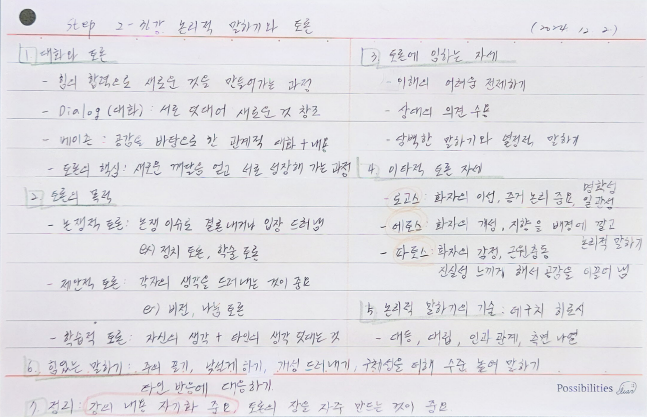 Step 2-최강 논리적 말하기와 토론 (2024. 12. 2.)
1 대화와 토론
- 힘의 합력으로 새로운 것을 만들어가는 과정
- Dialog (대화) : 서로 맞대어 새로운 것 창조
- 베이춘 : 공감을 바탕으로 한 관계적 대화 + 내용
- 토론의 핵심 : 새로운 깨달음을 얻고 서로 성장해 가는 과정
2. 토론의 목적
- 논쟁적 토론 : 논쟁 이슈로 결론내거나 입장 드러냄
ex) 정치 토론, 학술 토론
- 제안적 토론 : 각자의 생각을 드러내는 것이 중요
ex) 비전, 나눔 토론
- 학습적 토론 : 자신의 생각 + 타인의 생각 맞대는 것
3 토론에 임하는 자세
- 이해의 어려움 전제하기
- 상대의 의견 수용
- 담백한 말하기와 열정적 말하기
4. 이타적 토론 자세
- 로고스 : 화자의 이성, 증거 논리 중요, 명확성 일관성
- 에토스 : 화자의 개성, 지향을 배경에 깔고 논리적 말하기
- 파토스 : 화자의 감정, 근원충동
진실성 느끼게 해서 공감을 이끌어 냄
5 논리적 말하기의 기술 :
- 대등, 대립, 인과 관계, 측면 나열
6 힘있는 말하기 : 주의 끌기, 낯설게 하기, 개성 드러내기, 구체성을 위해 수준 높여 말하기
타인 반응에 대응하기
7 정리 : 강의 내용 자기화 중요 토론의 장을 자주 만드는 것이 중요
Possibilities